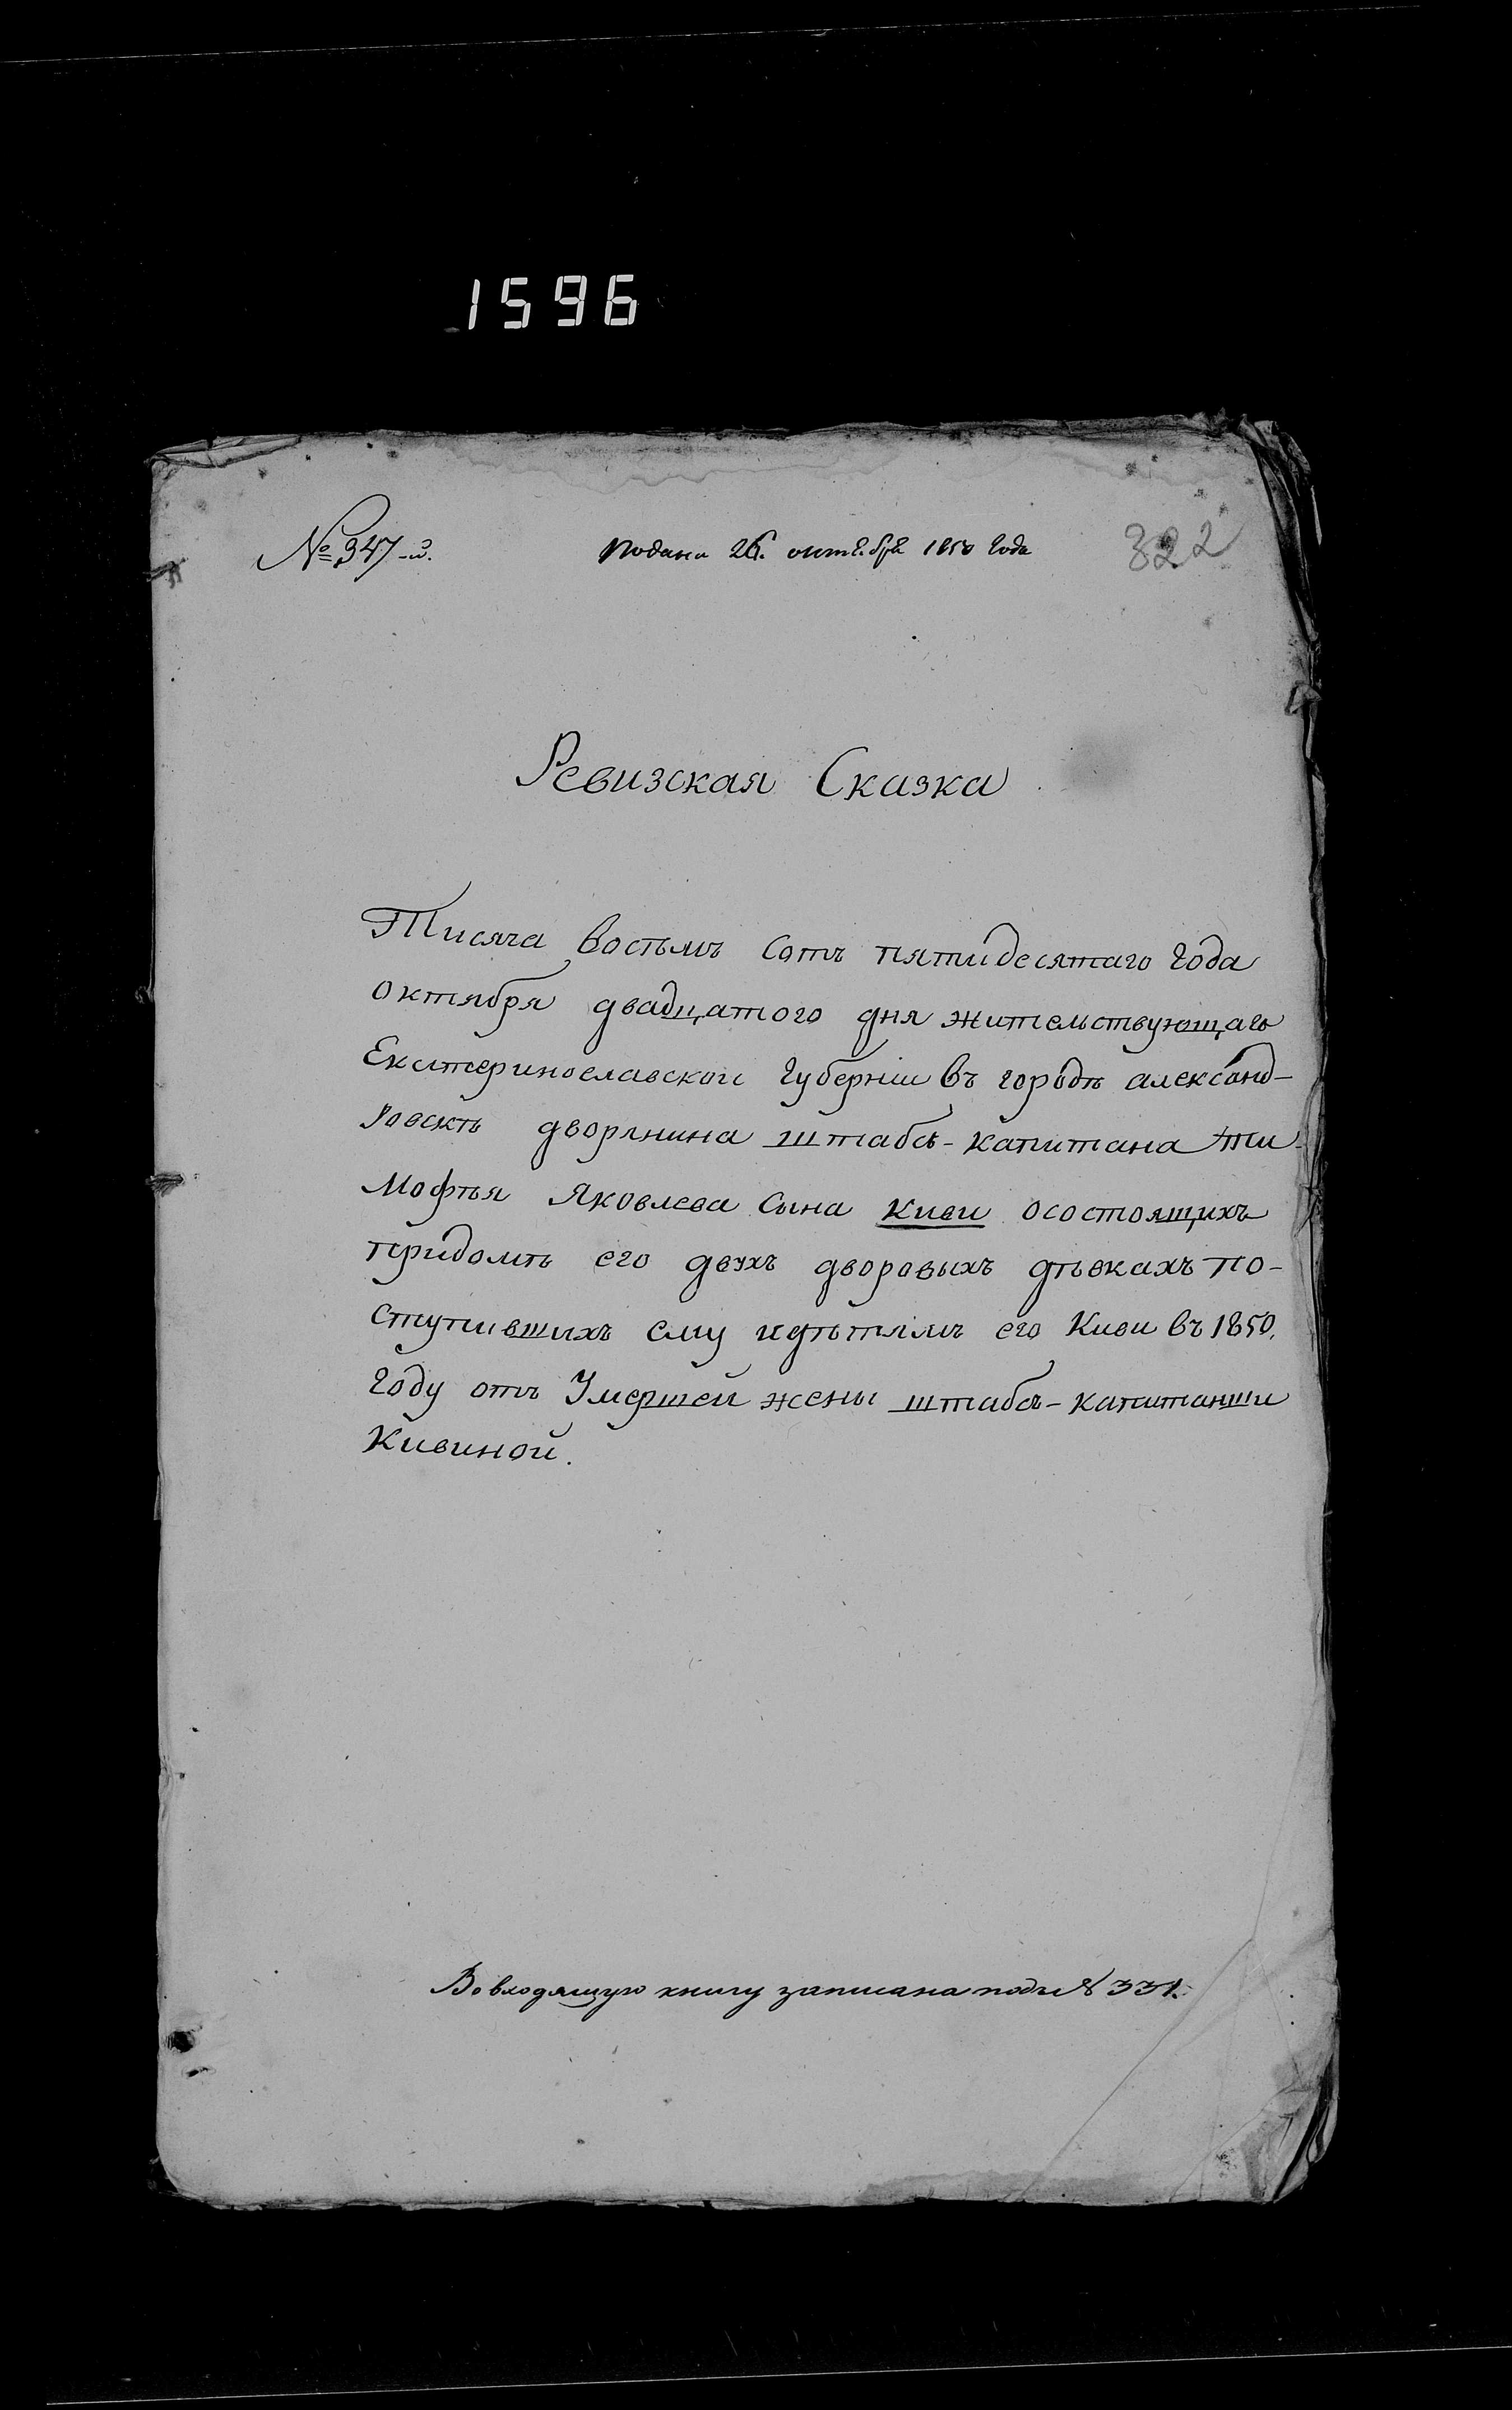 1596
№ 347-й.
Подана 26. октября 1850 года
322
Ревизская Сказка
Тисяча Востьмъ Сотъ пятидесятаго года
октября двадцатого дня жительствующаго
Екатеринославской Губерніи въ городѣ александ-
ровскѣ дворянина штабсъ-капитана Ти-
мофѣя Яковлева Сына Киви осостоящихъ
придомѣ его двухъ дворовыхъ дѣвкахъ по-
ступившихъ ему идѣтямъ его Киви въ 1850.
Году отъ Умершей жены штабсъ-капитанши
Кивиной.
Во входящую книгу записана подъ № 331.